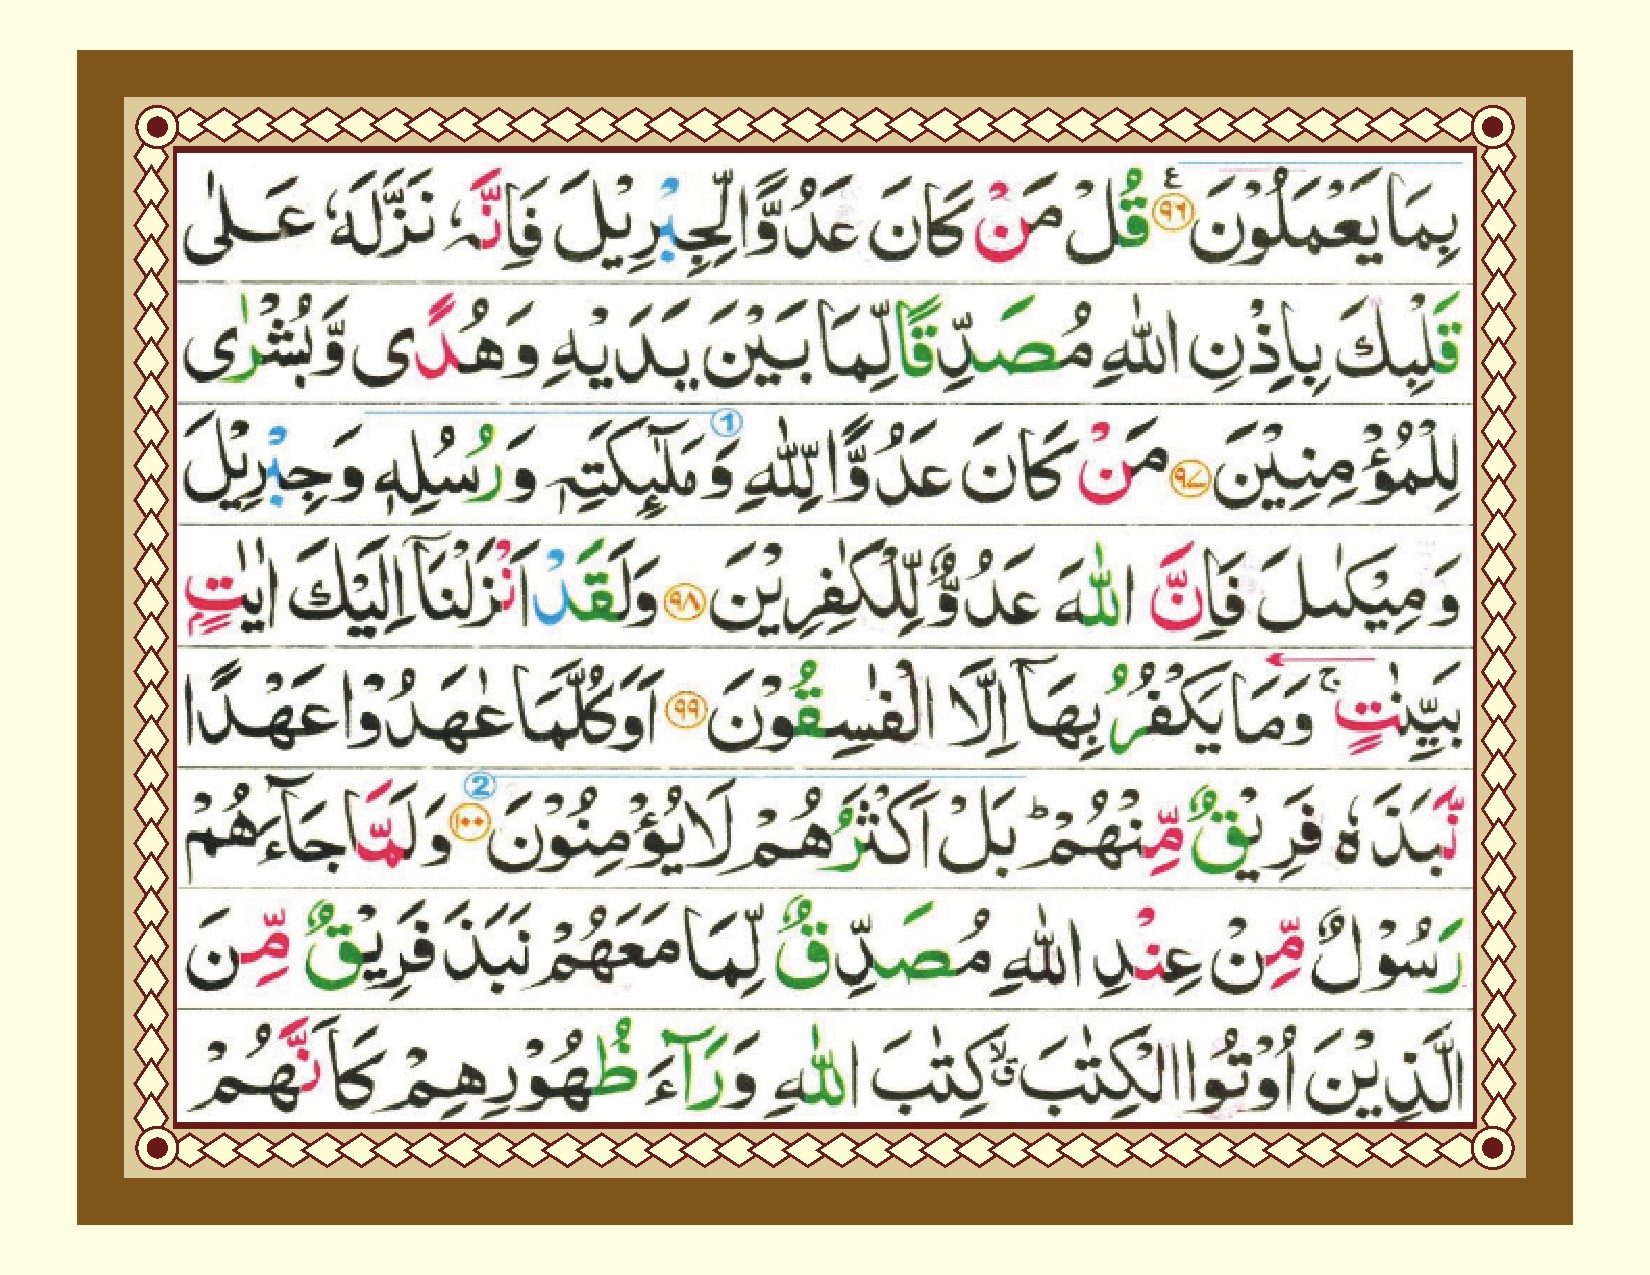 بِمَا يَعْمَلُوْنَ ۩٩٦ ع قُلْ مَنْ كَانَ عَدُوًّا لِّجِبْرِيْلَ فَاِنَّهٗ نَزَّلَهٗ عَلٰى
قَلْبِكَ بِاِذْنِ اللّٰهِ مُصَدِّقًا لِّمَا بَيْنَ يَدَيْهِ وَهُدًى وَّبُشْرٰى
لِلْمُؤْمِنِيْنَ ٩٧ مَنْ كَانَ عَدُوًّا لِّلّٰهِ 1 وَمَلٰٓئِكَتِهٖ وَرُسُلِهٖ وَجِبْرِيْلَ
وَمِيْكٰىلَ فَاِنَّ اللّٰهَ عَدُوٌّ لِّلْكٰفِرِيْنَ ٩٨ وَلَقَدْ اَنْزَلْنَآ اِلَيْكَ اٰيٰتٍۭ
بَيِّنٰتٍ ۚ وَمَا يَكْفُرُ بِهَآ اِلَّا الْفٰسِقُوْنَ ٩٩ اَوَكُلَّمَا عٰهَدُوْا عَهْدًا
نَّبَذَهٗ فَرِيْقٌ مِّنْهُمْ ؕ بَلْ اَكْثَرُهُمْ لَا يُؤْمِنُوْنَ ١٠٠ 2 وَلَمَّا جَآءَهُمْ
رَسُوْلٌ مِّنْ عِنْدِ اللّٰهِ مُصَدِّقٌ لِّمَا مَعَهُمْ نَبَذَ فَرِيْقٌ مِّنَ
الَّذِيْنَ اُوْتُوا الْكِتٰبَ ۙق كِتٰبَ اللّٰهِ وَرَآءَ ظُهُوْرِهِمْ كَاَنَّهُمْ